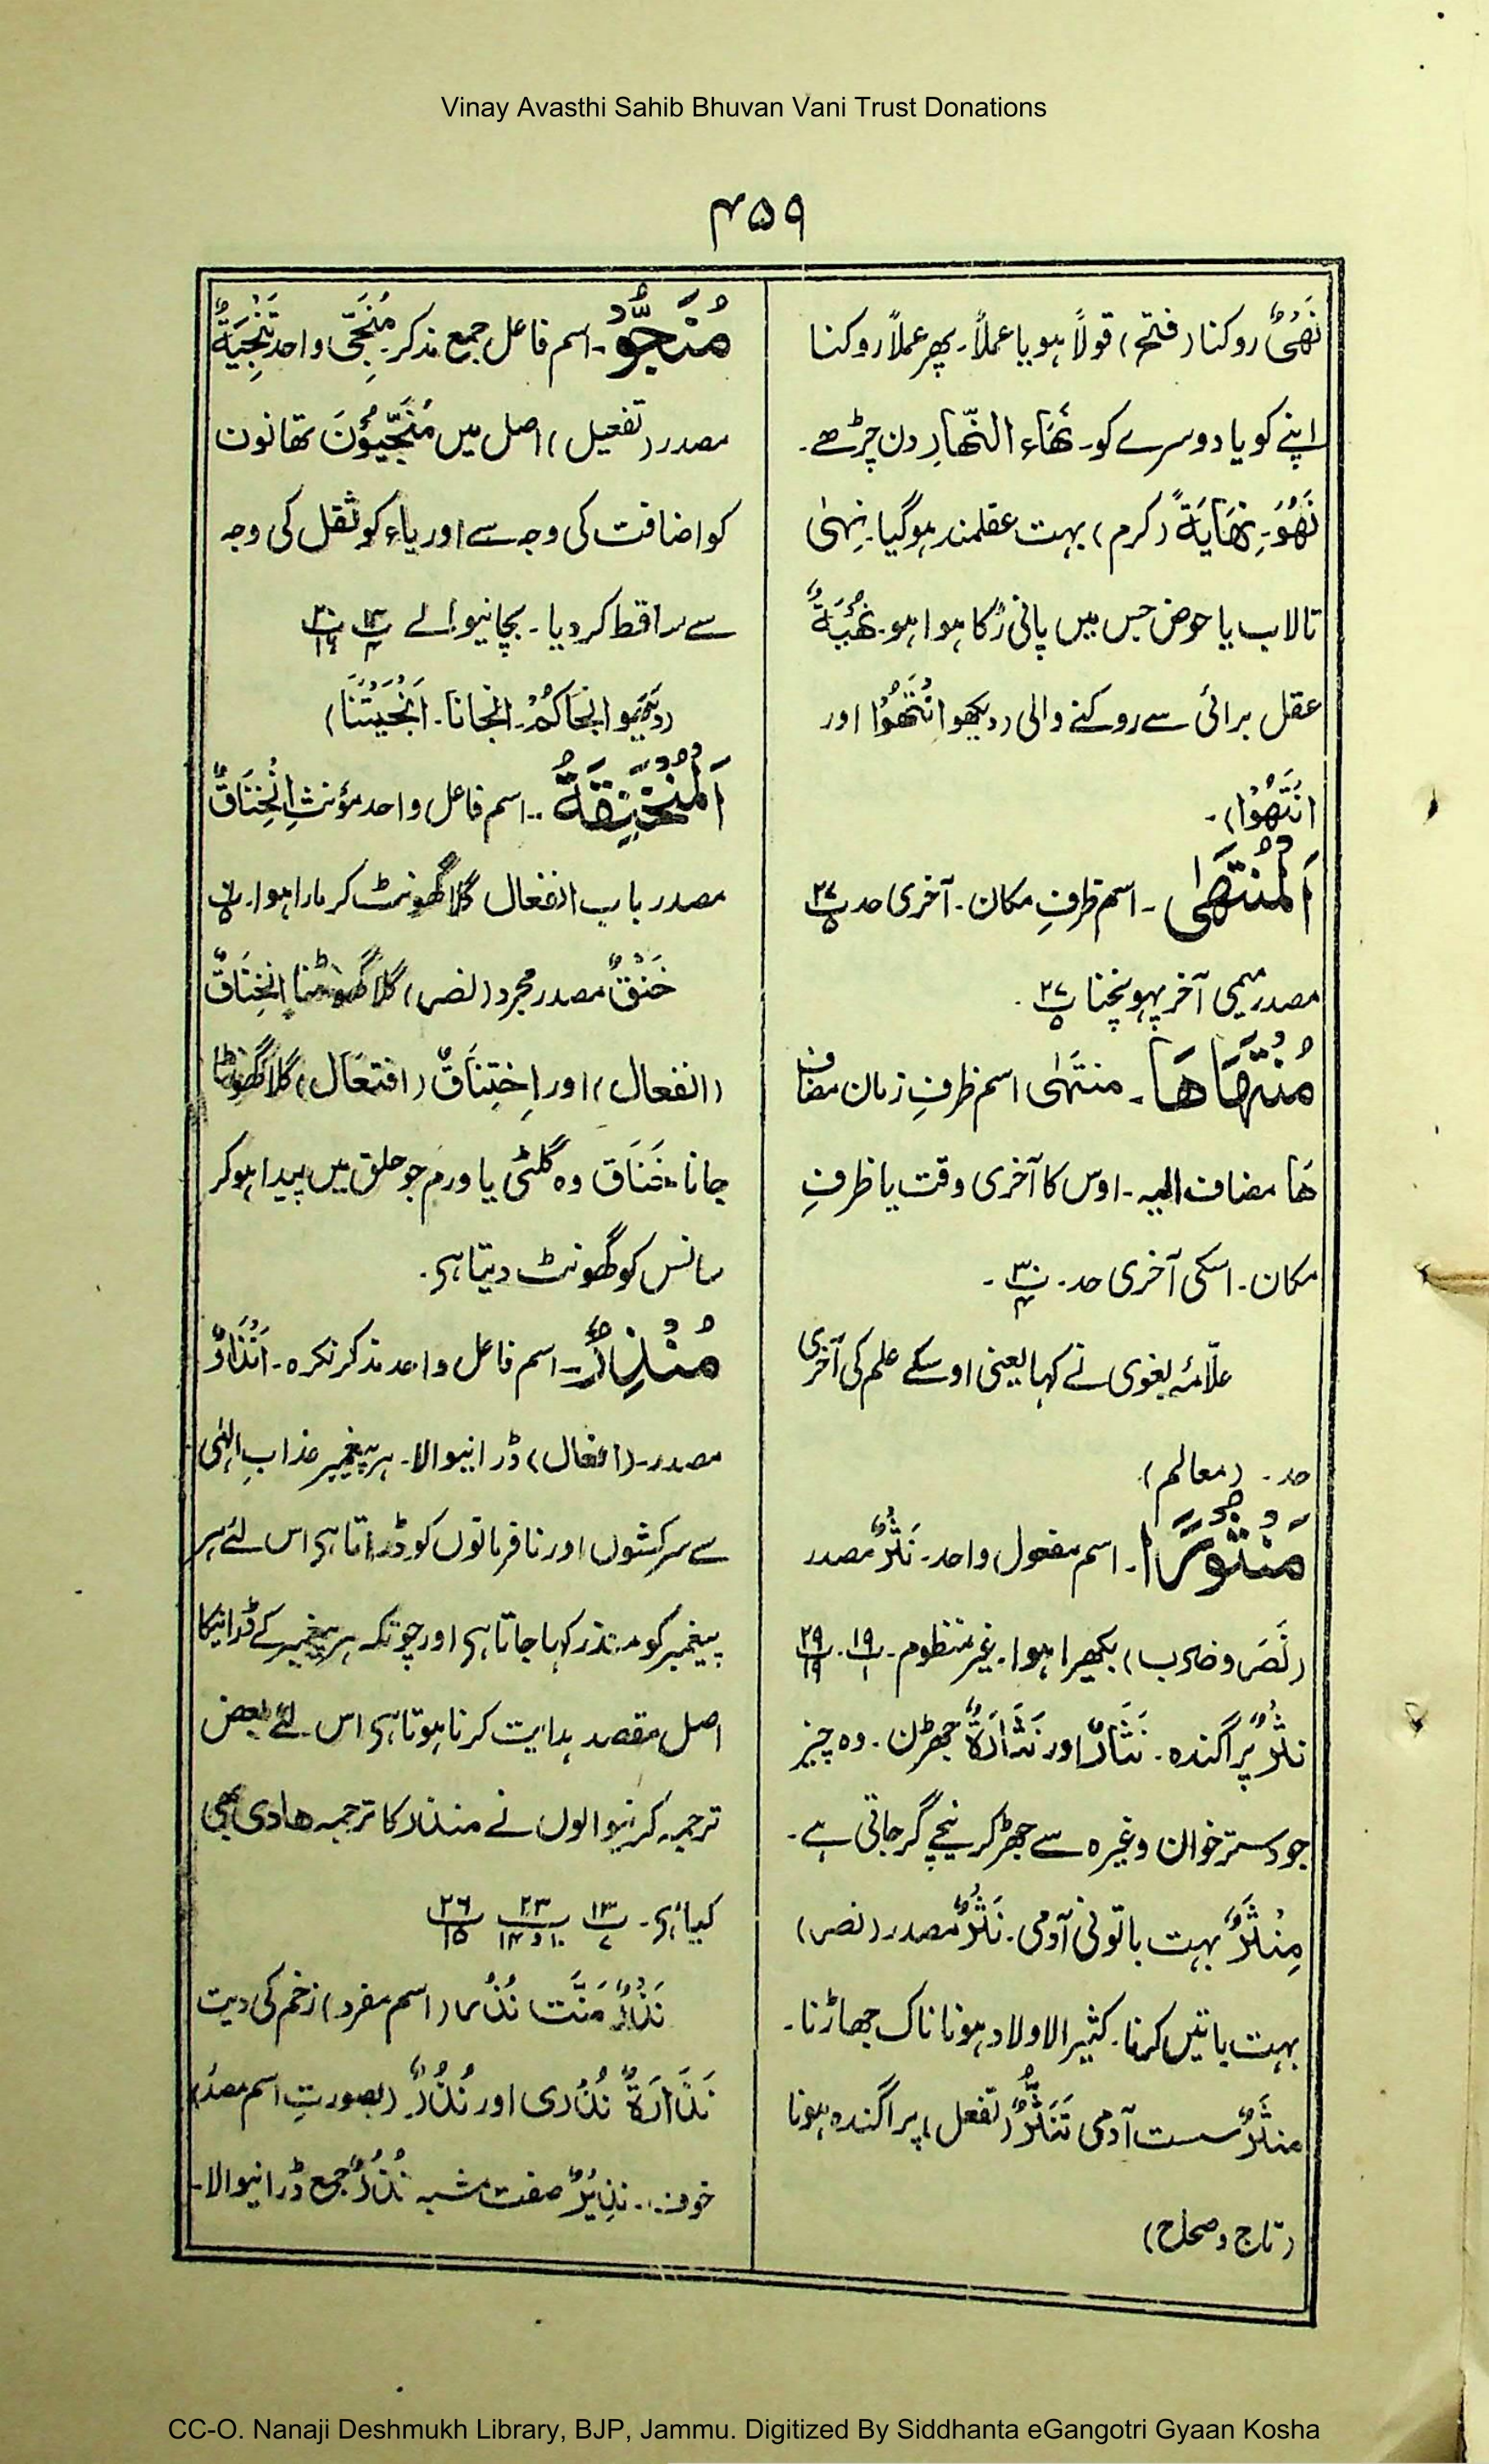 Vinay Avasthi Sahib Bhuvan Vani Trust Donations
۴۵۹
نَهْیٌ روکنا (فتح) قولاً ہو یا عملاً۔ پھر عملاً روکنا
اپنے کو یا دوسرے کو۔ نَهَاءُ النَّهَارِ دن چڑھے۔
نَهُوَ۔ نِهَایَةً (کرم) بہت عقلمند ہوگیا۔ نِہیٰ
تالاب یا حوض جس میں پانی رُکا ہوا ہو۔ نُهْیَةٌ
عقل برائی سے روکنے والی (دیکھو انْتَهُوْا اور
انْتَهَوْا)۔
اَلْمُنْتَهٰی۔ اسم ظرفِ مکان۔ آخری حد پ ۲۷ ۵
مصدر میمی آخر پہونچنا پ ۲۷ ۵ ۔
مُنْتَهَاهَا۔ منتہٰی اسم ظرفِ زمان مضاف
هَا مضاف الیہ۔ اوس کا آخری وقت یا ظرفِ
مکان۔ اسکی آخری حد۔ پ ۳۰ ۴ ۔
علّامہ بغوی نے کہا یعنی اوسکے علم کی آخری
حد۔ (معالم)
مَنْثُوْرًا۔ اسم مفعول واحد۔ نَثْرٌ مصدر
(نَصَرَ و ضرب) بکھیرا ہوا۔ غیر منظوم۔ پ ۱۹ ۱ ۔ پ ۲۹ ۱۹
نثرٌ پراگندہ۔ نَثَارٌ اور نَثَارَةٌ جھڑن۔ وہ چیز
جو دسترخوان وغیرہ سے جھڑ کر نیچے گر جاتی ہے۔
مِنْثَرٌ بہت باتونی آدمی۔ نَثْرٌ مصدر (نصر)
بہت باتیں کرنا۔ کثیر الاولاد ہونا ناک جھاڑنا۔
منثَرٌ سست آدمی تَنَثُّرٌ (تفعل) پراگندہ ہونا
(تاج و صحاح)
مُنَجُّوْ۔ اسم فاعل جمع مذکر۔ مُنَجِّی واحد تَنْجِیَةٌ
مصدر (تفعیل) اصل میں مُنَجِّیُوْنَ تھا نون
کو اضافت کی وجہ سے اور یاء کو ثقل کی وجہ
سے ساقط کردیا۔ بچانیوالے پ ۱۴ ۴ پ ۲۰ ۱۶
(دیکھو انجَاکُمْ۔ انجانا۔ اَنْجَیْتَنَا)
اَلْمُنْخَنِقَةُ۔ اسم فاعل واحد مؤنث اِنْخِنَاقٌ
مصدر باب انفعال گلا گھونٹ کر مارا ہوا۔ پ ۶ ۵
خَنْقٌ مصدر مجرد (نصر) گلا گھونٹنا اِنْخِنَاقٌ
(انفعال) اور اِخْتِنَاقٌ (افتعال) گلا گھونٹا
جانا۔ خَنَاق وہ گلٹی یا ورم جو حلق میں پیدا ہوکر
سانس کو گھونٹ دیتا ہی۔
مُنْذِرٌ۔ اسم فاعل واحد مذکر نکرہ۔ اَنْذَارٌ
مصدر۔ (افعال) ڈرانیوالا۔ ہر پیغمبر عذابِ الہٰی
سے سرکشوں اور نافرمانوں کو ڈراتا ہی اس لئے ہر
پیغمبر کو منذر کہا جاتا ہی اور چونکہ ہر پیغمبر کے ڈرانیکا
اصل مقصد ہدایت کرنا ہوتا ہی اس لئے بعض
ترجمہ کرنیوالوں نے منذر کا ترجمہ هادی بھی
کیا ہی۔ پ ۱۳ ۷ پ ۲۳ ۱۰ و ۱۴ پ ۲۶ ۱۵
نَذْرٌ مَنَّت نُذُر (اسم مفرد) زخم کی دیت
نَذَارَةٌ نُذْری اور نُذُرٌ (بصورتِ اسم مصدر)
خوف۔ نذِیْرٌ صفت مشبہ نُذُرٌ جمع ڈرانیوالا۔
CC-O. Nanaji Deshmukh Library, BJP, Jammu. Digitized By Siddhanta eGangotri Gyaan Kosha